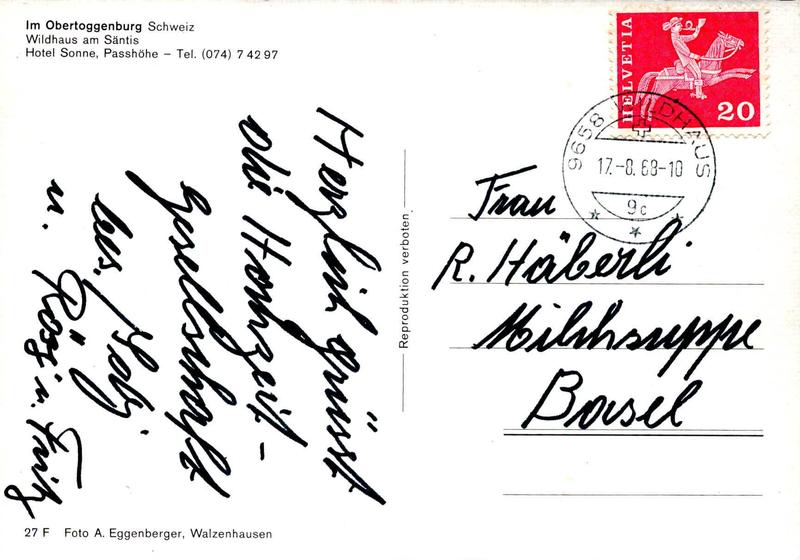 Im Obertoggenburg Schweiz
Wildhaus am Säntis
Hotel Sonne, Passhöhe – Tel. (074) 7 42 97
HELVETIA
20
9658 WILDHAUS
17.-8. 68-10
9c
Herzlich grüsst
die Hochzeit-
gesellschaft
bes.
u. Rösj u. Fritz
Reproduktion verboten
Frau
R. Häberli
Milchsuppe
Basel
27 F Foto A. Eggenberger, Walzenhausen